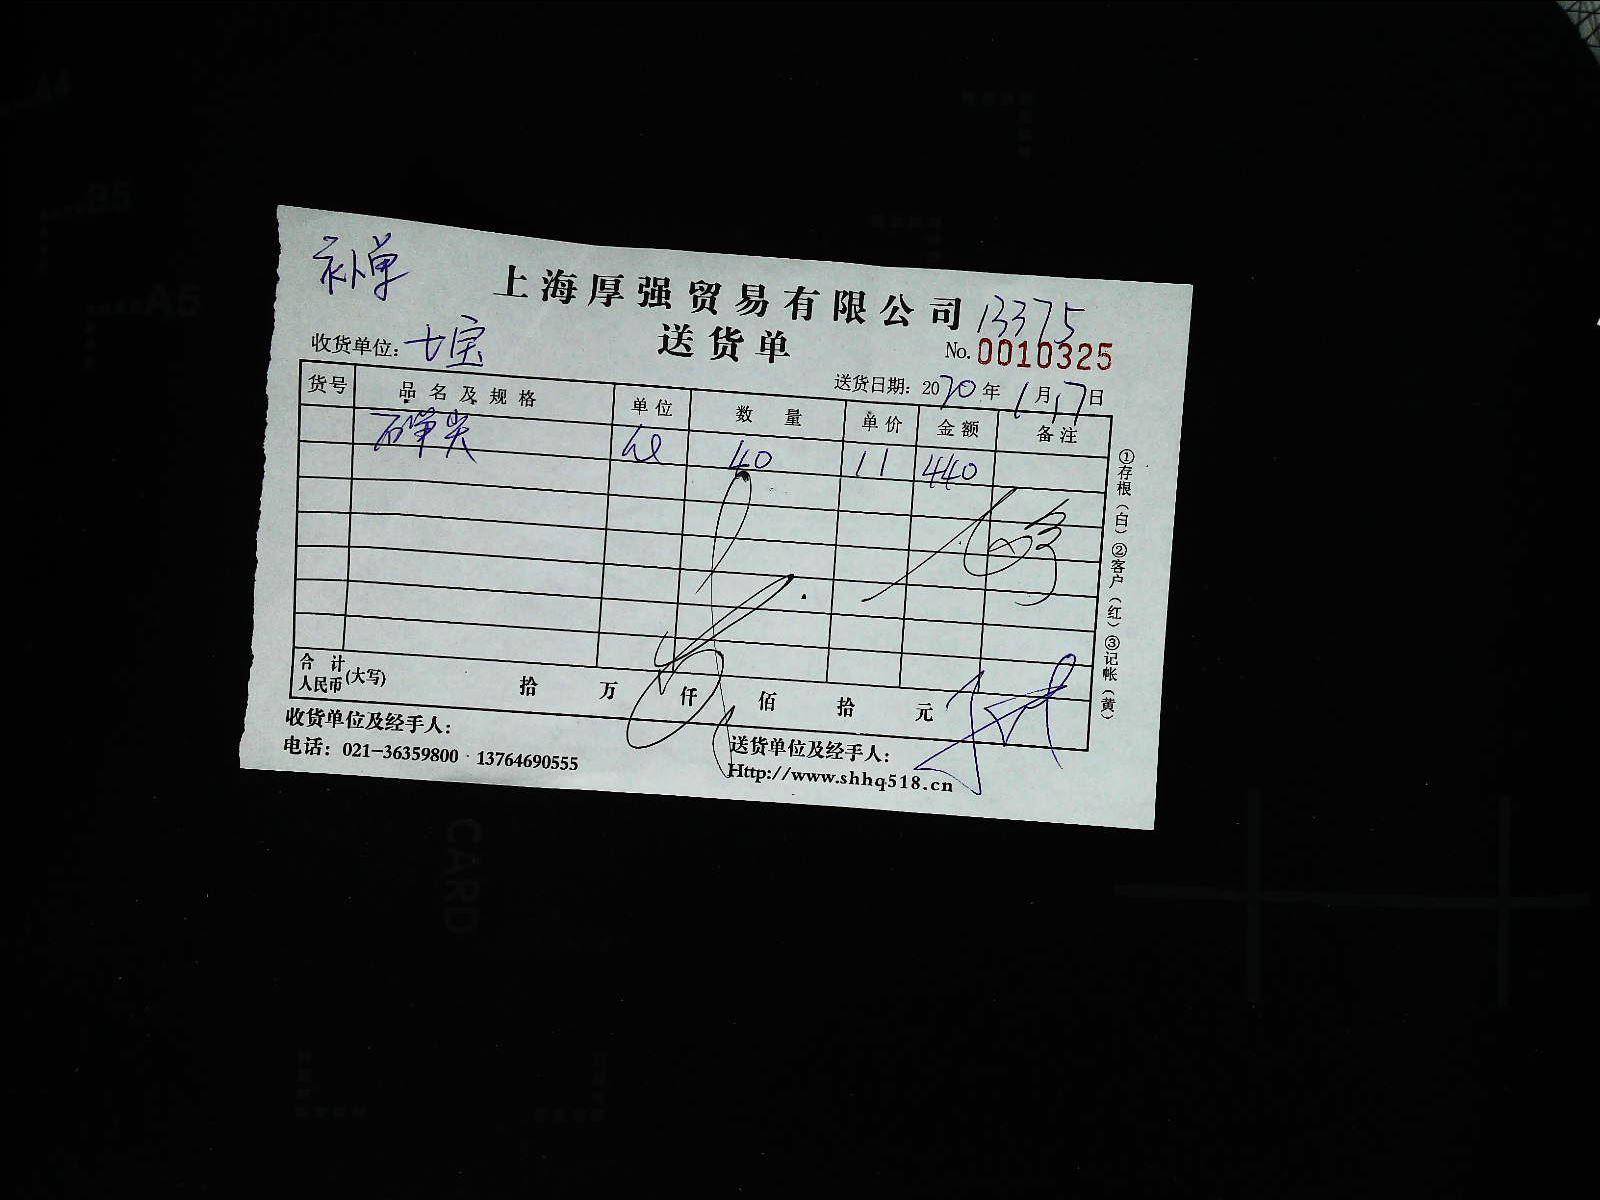 补单
上海厚强贸易有限公司 13375
送货单
No. 0010325
收货单位: 七宝
送货日期: 2020年1月17日
货号 品名及规格 单位 数量 单价 金额 备注
40 11 440
合计人民币(大写) 拾 万 仟 佰 拾 元
收货单位及经手人:
送货单位及经手人:
电话: 021-36359800 13764690555
Http://www.shhq518.cn
①存根(白) ②客户(红) ③记帐(黄)
CARD
A4
B5
A5